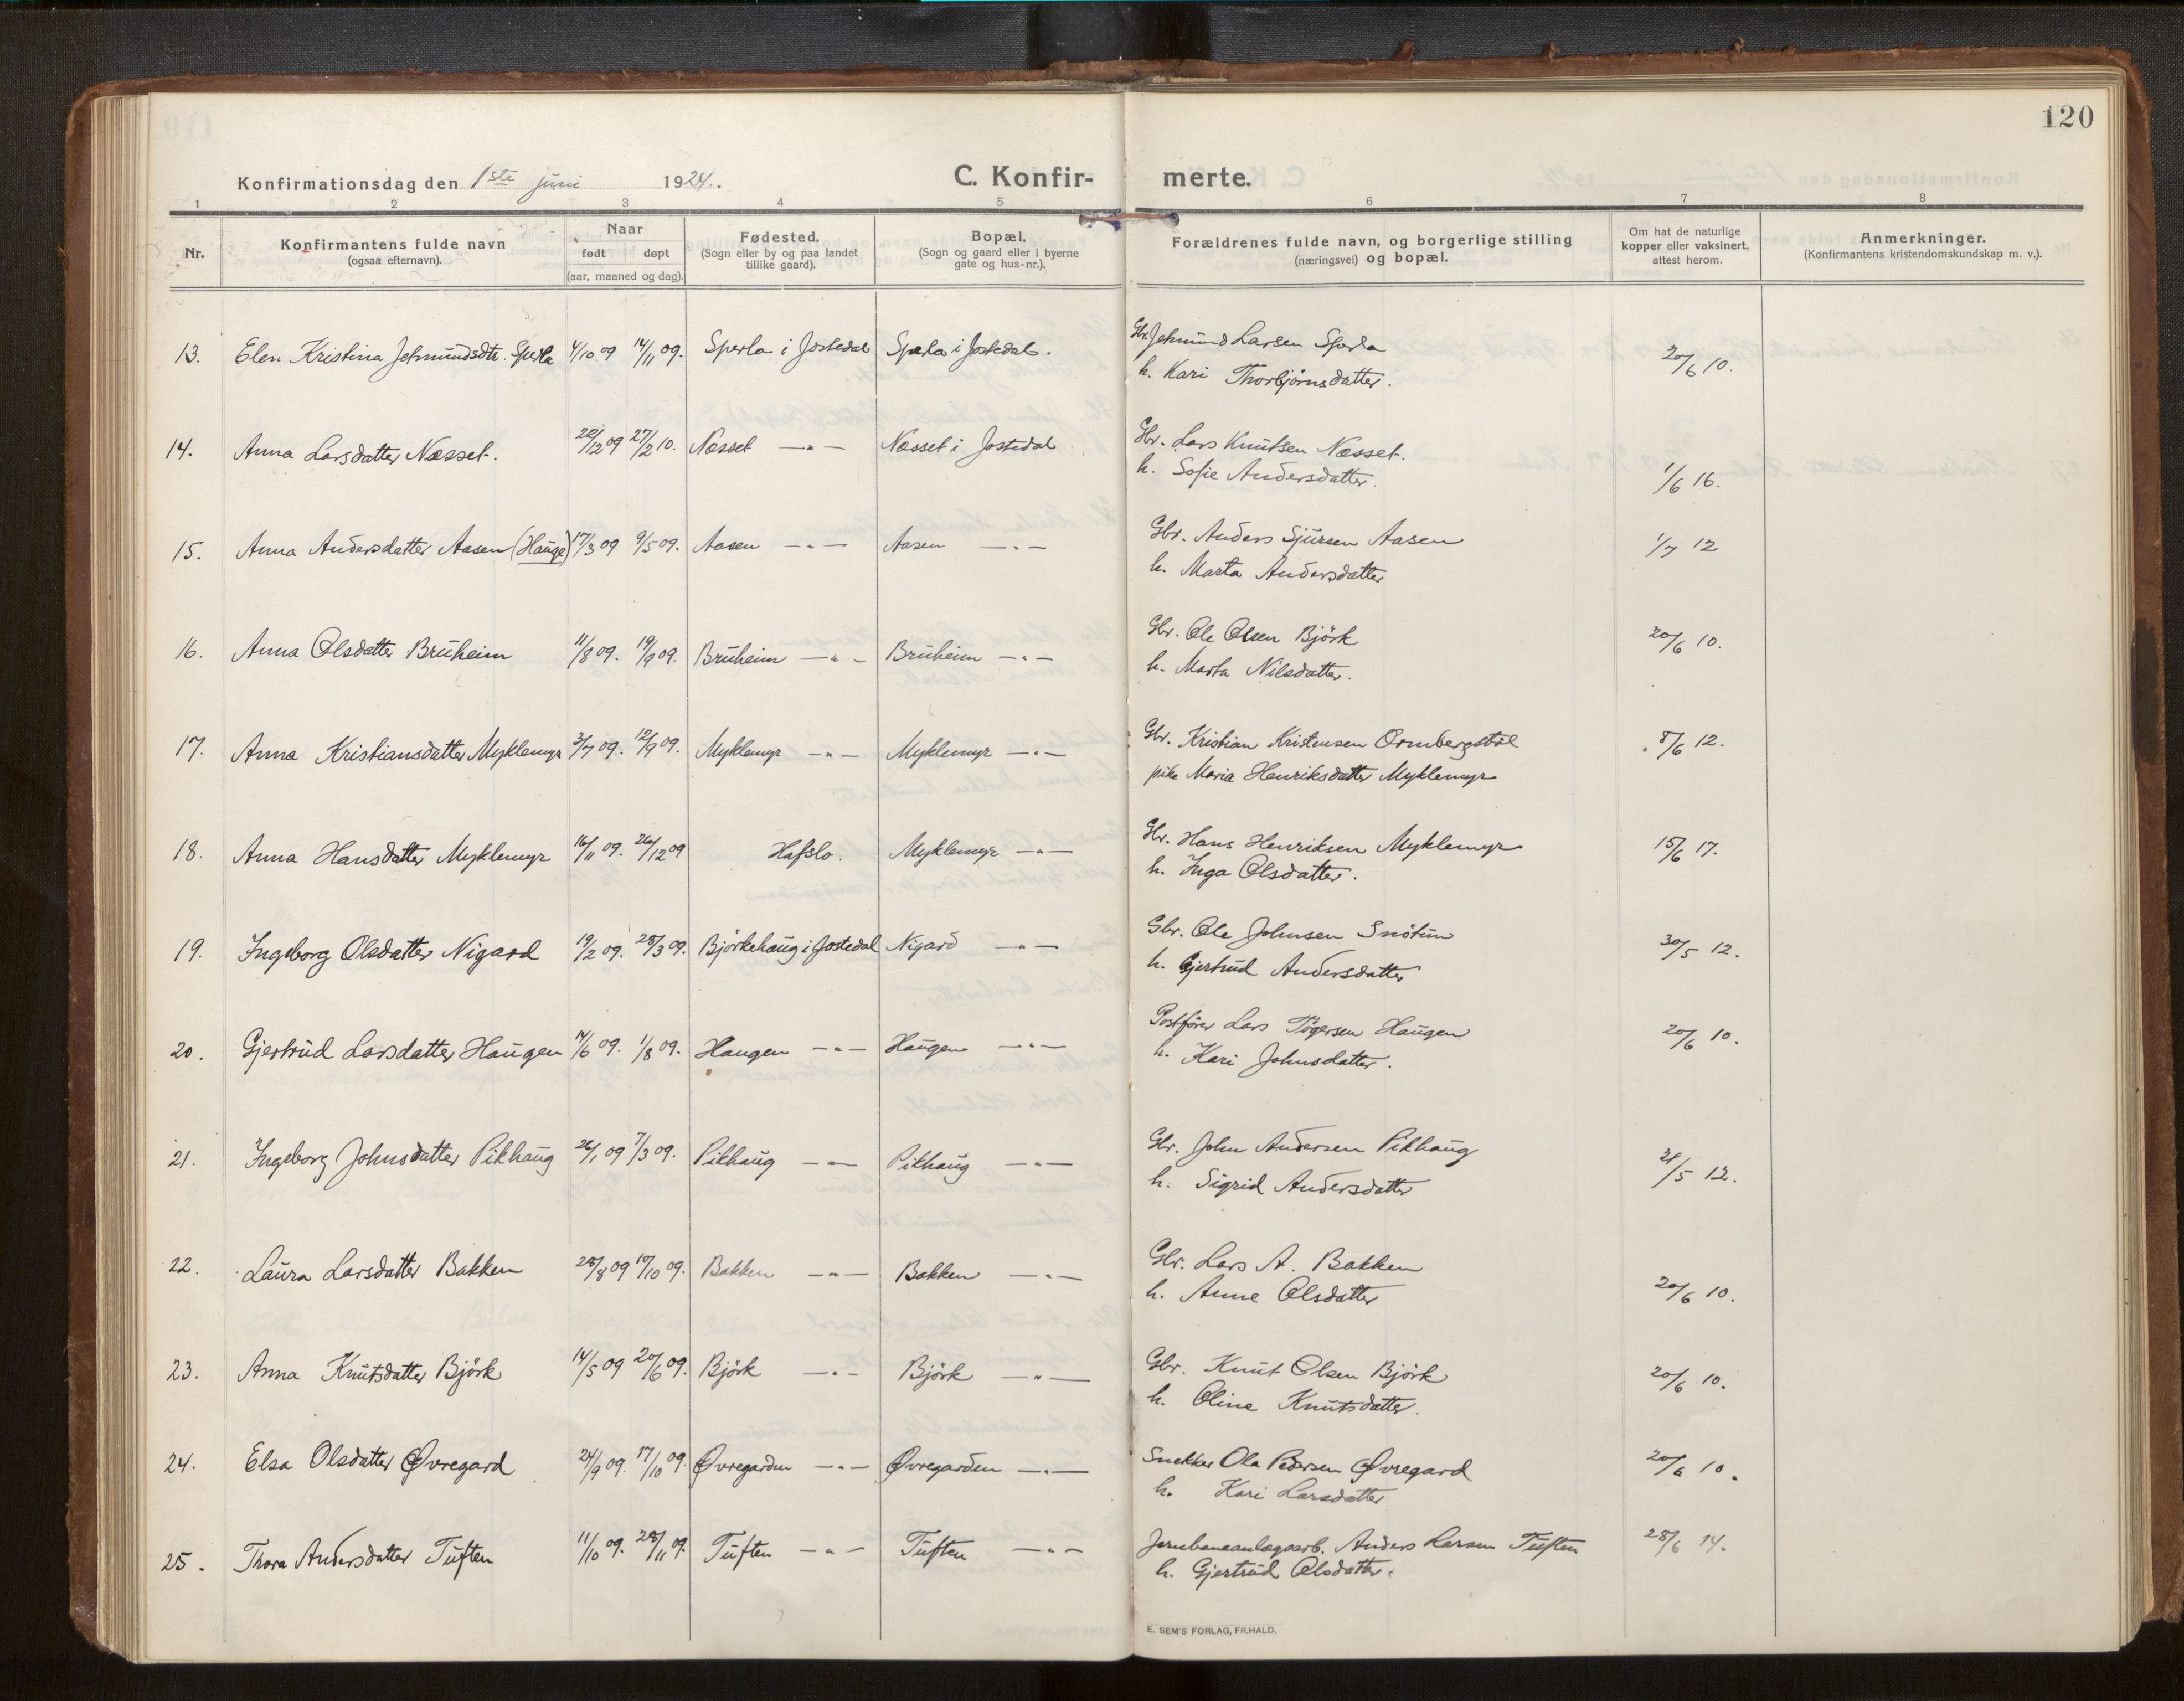 120
Konfirmationsdag den 1ste juni 1924.
C. Konfir- merte.
1 2 3 4 5 6 7 8
Nr.
Konfirmantens fulde navn
(ogsaa efternavn).
Naar
født døpt
(aar, maaned og dag).
Fødested.
(Sogn eller by og paa landet
tillike gaard).
Bopæl.
(Sogn og gaard eller i byerne
gate og hus-nr.).
Forældrenes fulde navn, og borgerlige stilling
(næringsvei) og bopæl.
Om hat de naturlige
kopper eller vaksinert,
attest herom.
Anmerkninger.
(Konfirmantens kristendomskundskap m. v.).
13. Elen Kristina Jetmundsdtr. Sperla 4/10 09 14/11 09. Sperla i Jostedal Sperla i Jostedal. Gbr. Jetmund Larsen Sperla 20/6 10.
h. Kari Thorbjørnsdatter.
14. Anna Larsdatter Næsset. 22/12 09 27/2 10. Næsset —"— Næsset i Jostedal Gbr. Lars Knutsen Næsset. 1/6 16.
h. Sofie Andersdatter.
15. Anna Andersdatter Aasen (Hauge) 17/3 09 9/5 09. Aasen —"— Aasen —"— Gbr. Anders Sjursen Aasen 1/7 12
h. Marta Andersdatter
16. Anna Olsdatter Bruheim 11/8 09. 19/9 09. Bruheim —"— Bruheim —"— Gbr. Ole Olsen Björk 20/6 10.
h. Marta Nilsdatter.
17. Anna Kristiansdatter Myklemyr 3/7 09. 12/9 09. Myklemyr —"— Myklemyr —"— Gbr. Kristian Kristensen Ormbergstøl 8/6 12.
pike Maria Henriksdatter Myklemyr
18. Anna Hansdatter Myklemyr 16/11 09. 26/12 09 Hafslo. Myklemyr —"— Gbr. Hans Henriksen Myklemyr 15/6 17.
h. Inga Olsdatter.
19. Ingeborg Olsdatter Nigard 19/2 09. 28/3 09. Björkehaug i Jostedal Nigard —"— Gbr. Ole Johnsen Snøtun 30/5 12.
h. Gjertrud Andersdatter
20. Gjertrud Larsdatter Haugen 14/6 09. 1/8 09. Haugen —"— Haugen —"— Postfører Lars Tøgersen Haugen 20/6 10.
h. Kari Johnsdatter.
21. Ingeborg Johnsdatter Pikhaug 26/1 09 7/3 09. Pikhaug —"— Pikhaug —"— Gbr. John Andersen Pikhaug 21/5 12.
h. Sigrid Andersdatter
22. Laura Larsdatter Bakken 28/8 09 10/10 09. Bakken —"— Bakken —"— Gbr. Lars A. Bakken 20/6 10.
h. Anne Olsdatter
23. Anna Knutsdatter Björk 14/5 09 20/6 09. Björk —"— Björk —"— Gbr. Knut Olsen Björk 20/6 10.
h. Oline Knutsdatter.
24. Elsa Olsdatter Øvregard 24/9 09. 17/10 09. Øvregarden —"— Øvregarden —"— Snekker Ola Pedersen Øvregard 20/6 10.
h. Kari Larsdatter
25. Thora Andersdatter Tuften 11/10 09. 28/11 09. Tuften —"— Tuften —"— Jernbaneanlægsarb. Anders Larsen Tuften 28/6 14.
h. Gjertrud Olsdatter.
E. SEM'S FORLAG, FR.HALD.